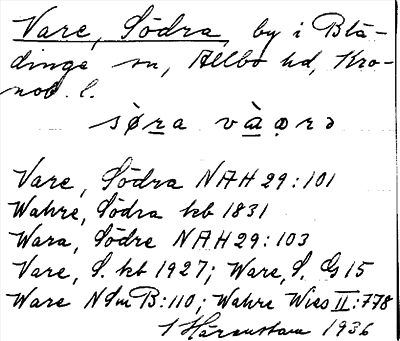 Vare, Södra, by i Blä-
dinge sn, Allbo hd, Kro-
nob. l.
sø̀ra và̱ərə
Vare, Södra NAH 29:101
Wahre, Södra kb 1831
Wara, Södre NAH 29:103
Vare, S. kb 1927; Ware, S. G 15
Ware NSmB:110; Wahre Wies II:778
I Härenstam 1936